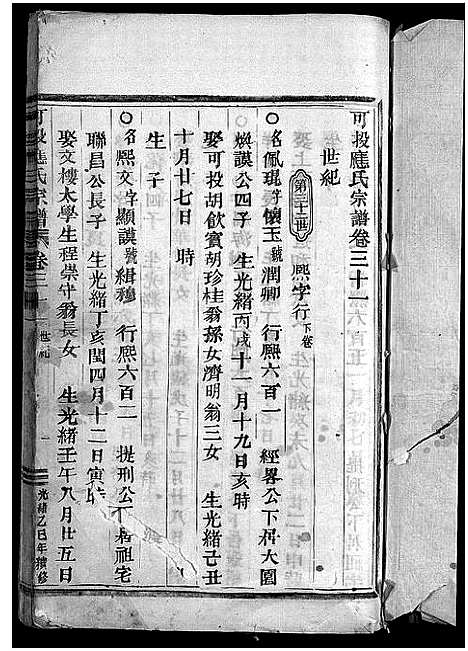 可投應氏宗譜卷三十一
世紀
第三十二世 熙字行下卷
名佩琨字懷玉號潤卿 行熙六百一 經畧公下祠大園
煥謨公四子 生光緒丙戌十一月十九日亥時
娶可投胡飲賓胡珍桂翁孫女濟明翁三女 生光緒己丑
十月廿七日 時
生 子
名熙文字顯謨號緝穆 行熙六百二 提刑公下祠祖宅
聯昌公長子 生光緒丁亥閏四月十二日寅時
娶文樓太學生程崇守翁長女 生光緒壬午八月廿五日
可投應氏宗譜 卷三十一 世紀 一 光緒乙巳年續修